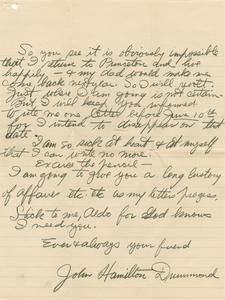 So you see it is obviously impossible
that I return to Princeton and live
happily — & my dad would make me
come back regular. So I will
Just where I am going is not certain
But I will keep you informed
to write me one letter before June 10th
for I intend to disappear on that
date
I am so sick at heart & at myself
that I can write no more.
Excuse the pencil —
I am going to give you a long history
of affairs etc. etc as my letter
Stick to me, Aedo for God knows
I need you.
Ever & always your friend
John Hamilton Drummond